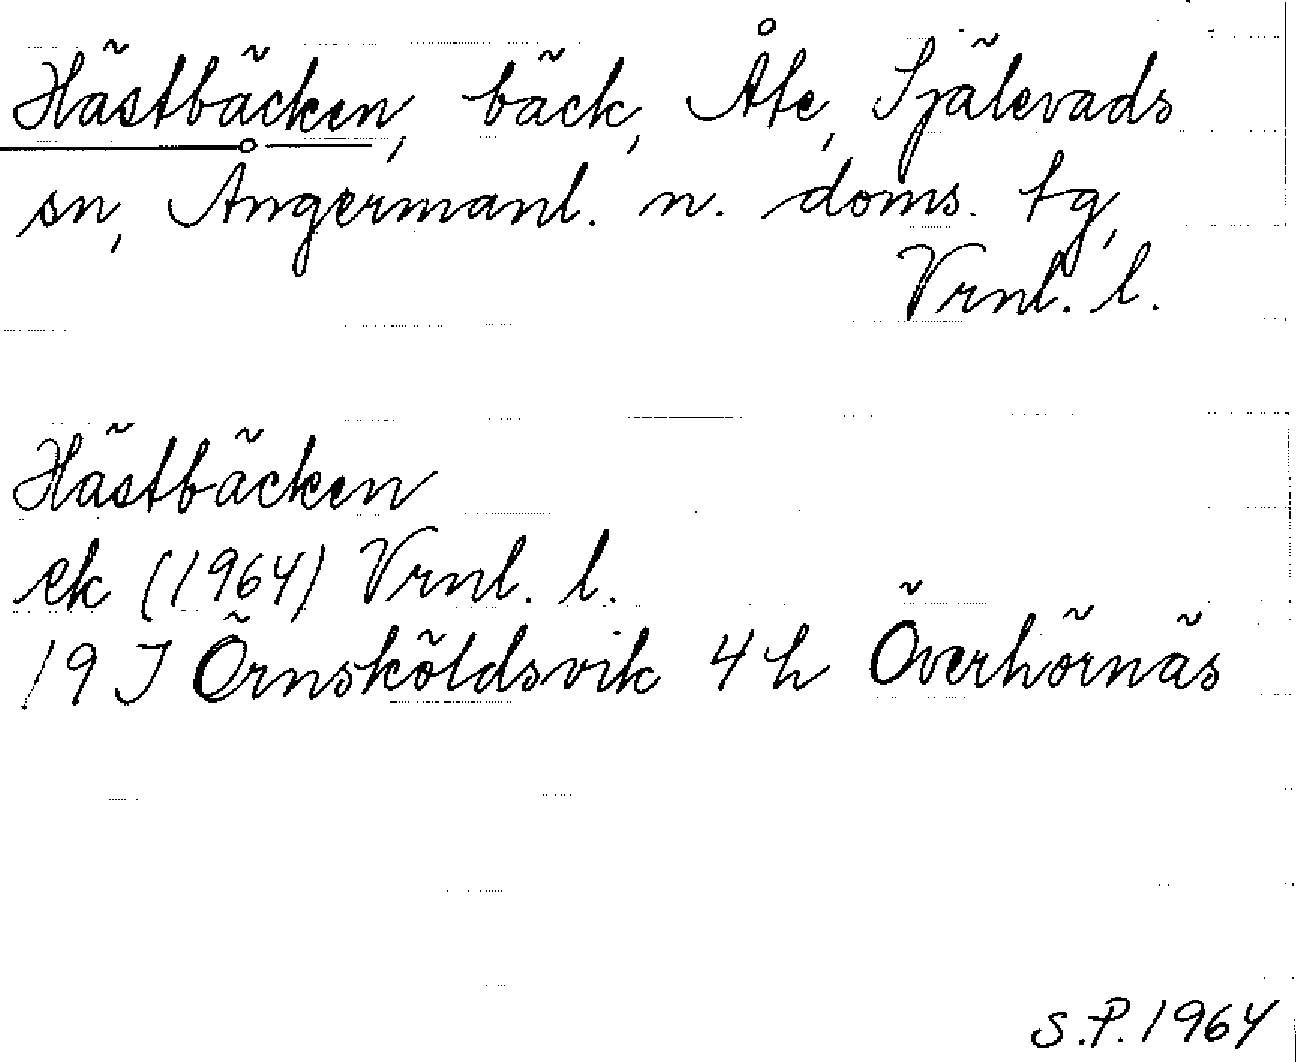 Hästbäcken, bäck, Åte, Själevads
sn, Ångermanl. n. doms. tg,
Vrnl. l.
Hästbäcken
ek (1964) Vrnl. l.
19 J Örnsköldsvik 4 h Överhörnäs
S.P. 1964